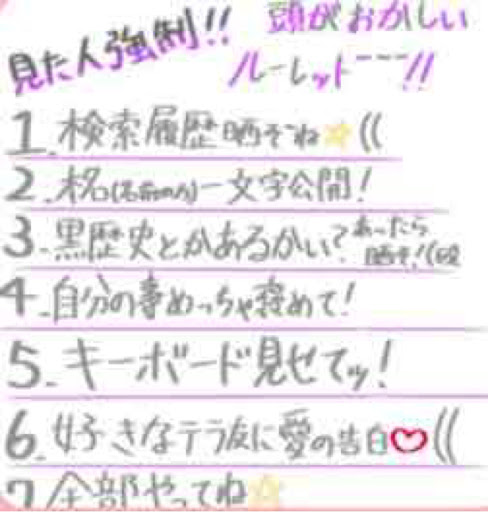 見た人強制!! 頭がおかしい
ルーレット---!!
1.検索履歴晒そーね☆((
2.本名(名前のみ)一文字公開!
3.黒歴史とかあるかい?あったら
晒せ!(殴
4.自分の事めっちゃ褒めて!
5.キーボード見せてッ!
6.好きなテラ友に愛の告白♡((
7全部やってね☆